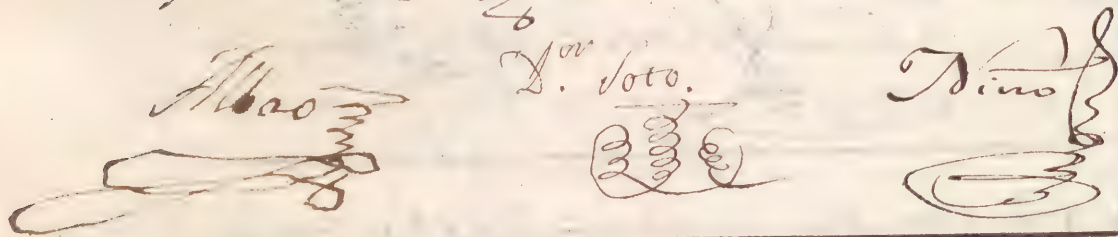 Albao D.or Soto. Nino